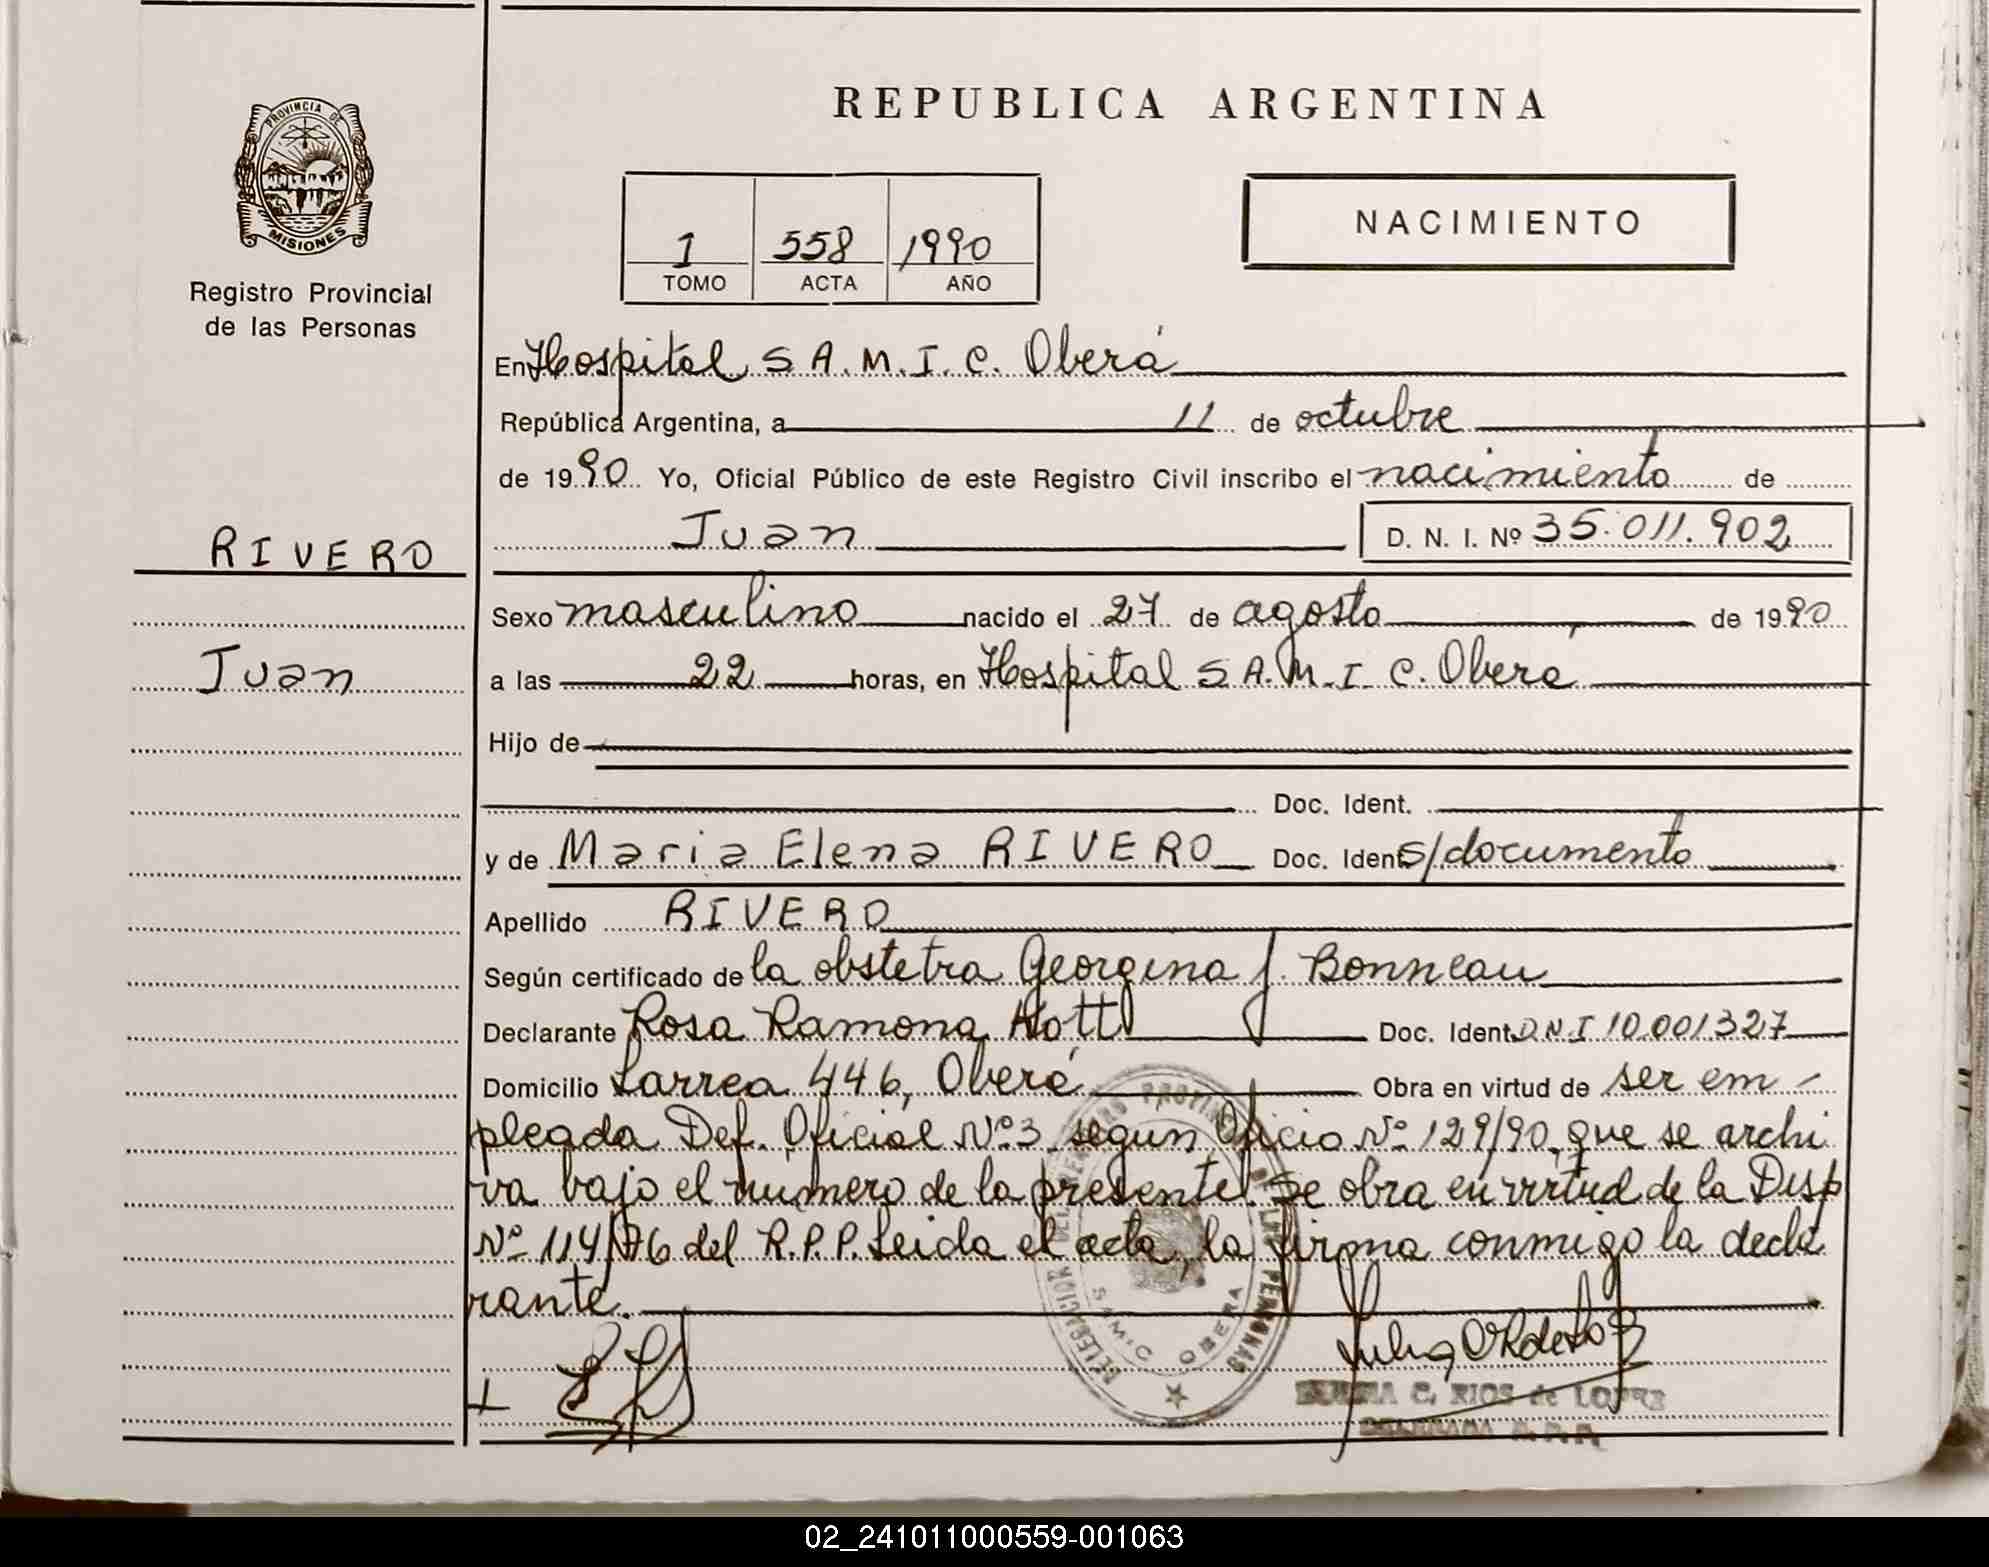 REPUBLICA ARGENTINA
PROVINCIA DE
MISIONES
Registro Provincial
de las Personas
1 558 1990
TOMO ACTA AÑO
NACIMIENTO
En Hospital S A.M.I.C. Oberá
República Argentina, a 11 de octubre
de 1990 Yo, Oficial Público de este Registro Civil inscribo el nacimiento de
Juan D. N. I. Nº 35.011.902
RIVERO
Sexo masculino nacido el 27 de agosto de 1990
Juan
a las 22 horas, en Hospital S A.M.I C. Oberá
Hijo de
Doc. Ident.
y de Maria Elena RIVERO Doc. Ident s/documento
Apellido RIVERO
Según certificado de la obstetra Georgina J. Bonneau
Declarante Rosa Ramona Doc. Ident. D.N.I 10.001.327
Domicilio Larrea 446, Oberá Obra en virtud de ser em-
pleada Def. Oficial Nº 3 segun Oficio Nº 129/90, que se archi
va bajo el número de la presente. Se obra en virtud de la Disp
Nº 114/76 del R.P.P. Leida el acta, la firma conmigo la decla
rante.
DELEGACION DEL REGISTRO PROVINCIAL DE LAS PERSONAS
SAMIC OBERA
C. RIOS de LOPEZ
DELEGADA R.P.P.
02_241011000559-001063